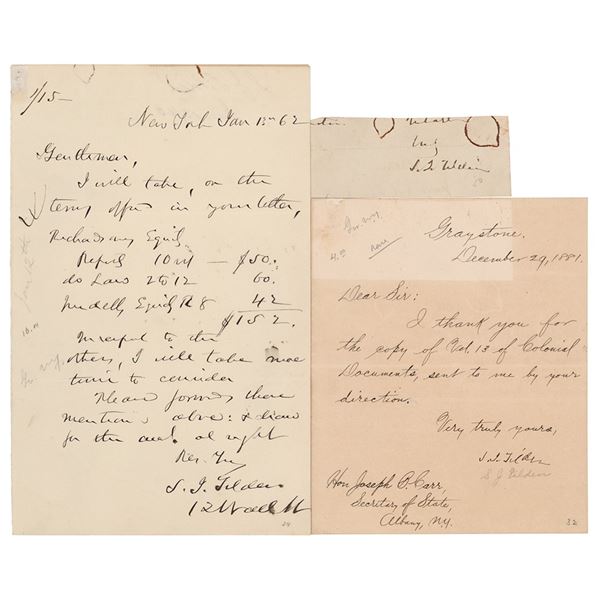 1/15-
New York Jan 13th 62
Gentlemen,
I will take, on the
terms offer in your letter,
Richardsons Equity
Reports 10 vol — $50.
do Law 2 to 12 60.
Equity R 8 42
$152.
In respect to the
others, I will take more
time to consider
Please forward those
mentioned above: & draw
for the amt. at sight
S. J. Tilden
12 Wall St
24
S. J. Tilden
Graystone,
December 29, 1881.
Dear Sir:
I thank you for
the copy of Vol. 13 of Colonial
Documents, sent to me by your
direction.
Very truly yours,
S. J. Tilden
S J Tilden
Hon Joseph B. Carr,
Secretary of State,
Albany, N.Y.
32